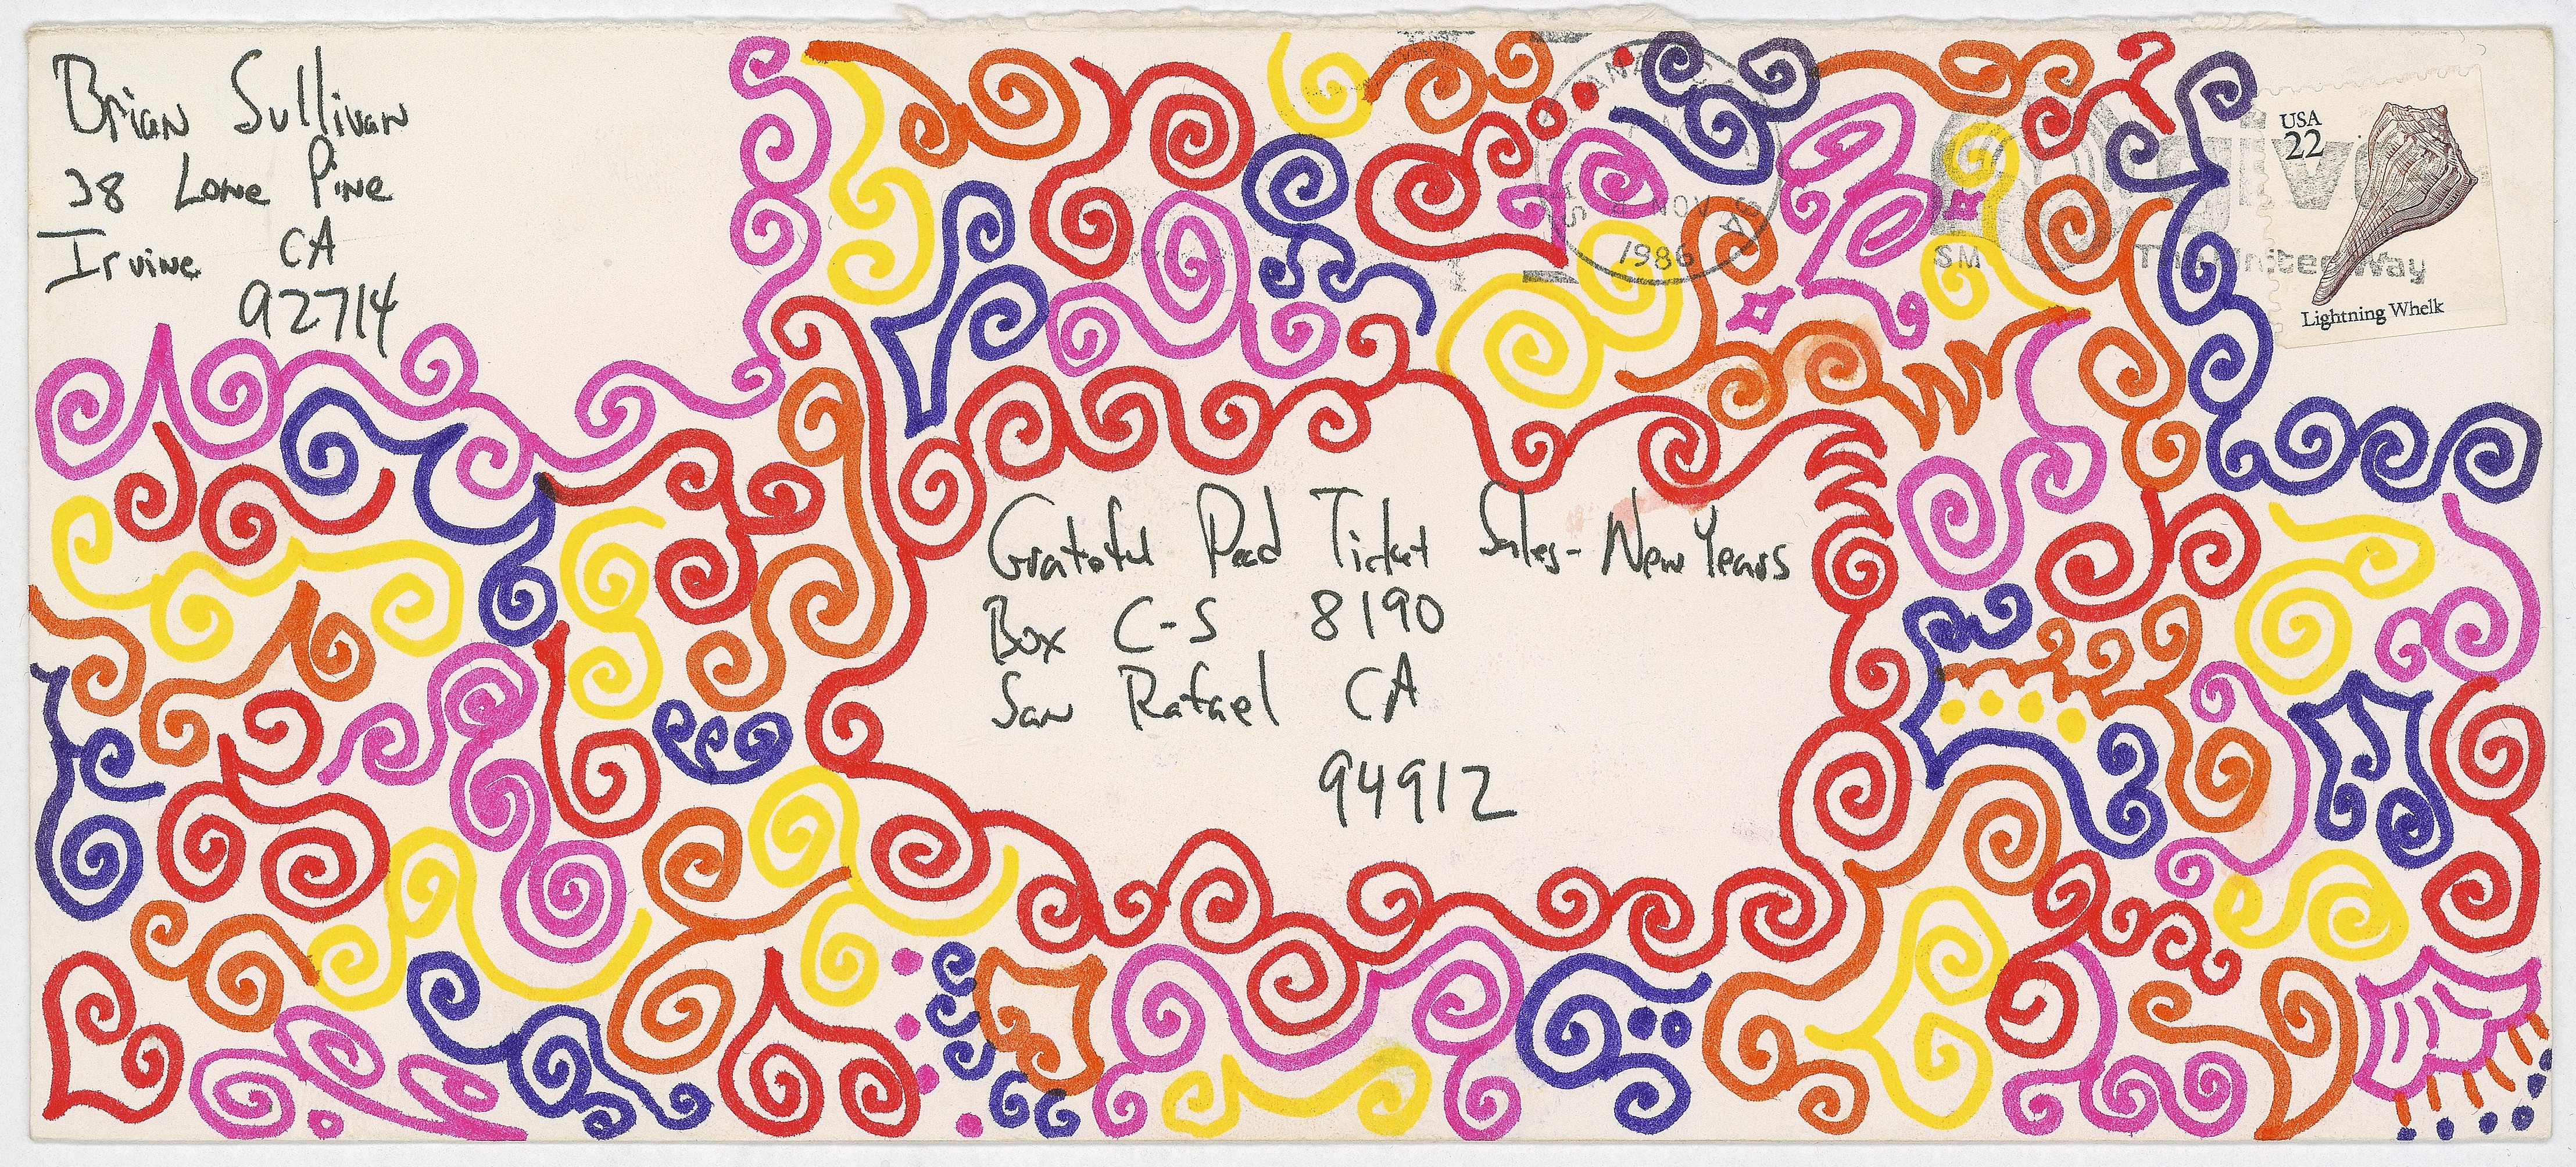 Brian Sullivan
38 Lone Pine
Irvine CA
92714
SANTA ANA CA
NOV
1986
SM
give
The United Way
USA
22
Lightning Whelk
Grateful Dead Ticket Sales - New Years
Box C-S 8190
San Rafael CA
94912